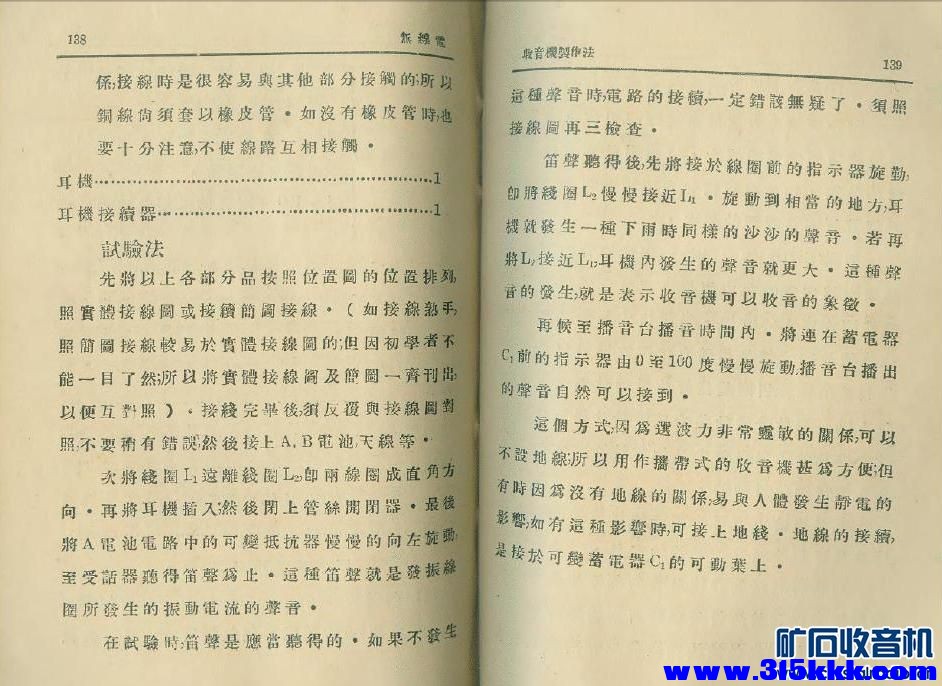 138
無線電
係,接線時是很容易與其他部分接觸的,所以
銅線尙須套以橡皮管。如沒有橡皮管時,也
要十分注意,不使線路互相接觸。
耳機……………………………………………1
耳機接續器……………………………………1
試驗法
先將以上各部分品按照位置圖的位置排列,
照實體接線圖或接續簡圖接線。(如接線熟手,
照簡圖接線較易於實體接線圖的;但因初學者不
能一目了然;所以將實體接線圖及簡圖一齊刊出,
以便互對照)。接綫完畢後,須反覆與接線圖對
照,不要稍有錯誤,然後接上A,B電池,天線等。
次將綫圈L₁遠離綫圈L₂,卽兩線圈成直角方
向。再將耳機插入,然後閉上管絲開閉器。最後
將A電池電路中的可變抵抗器慢慢的向左旋動,
至受話器聽得笛聲爲止。這種笛聲就是發振線
圈所發生的振動電流的聲音。
在試驗時,笛聲是應當聽得的。如果不發生
收音機製作法
139
這種聲音時,電路的接續,一定錯誤無疑了。須照
接線圖再三檢查。
笛聲聽得後,先將接於線圈前的指示器旋動,
卽將綫圈L₂慢慢接近L₁。旋動到相當的地方,耳
機就發生一種下雨時同樣的沙沙的聲音。若再
將L₂接近L₁,耳機內發生的聲音就更大。這種聲
音的發生,就是表示收音機可以收音的象徵。
再候至播音台播音時間內。將連在蓄電器
C₁前的指示器由0至100度慢慢旋動,播音台播出
的聲音自然可以接到。
這個方式,因爲選波力非常靈敏的關係,可以
不設地線;所以用作攜帶式的收音機甚爲方便;但
有時因爲沒有地線的關係,易與人體發生靜電的
影響;如有這種影響時,可接上地綫。地線的接續,
是接於可變蓄電器C₁的可動葉上。
矿石收音机
www.315kkk.com